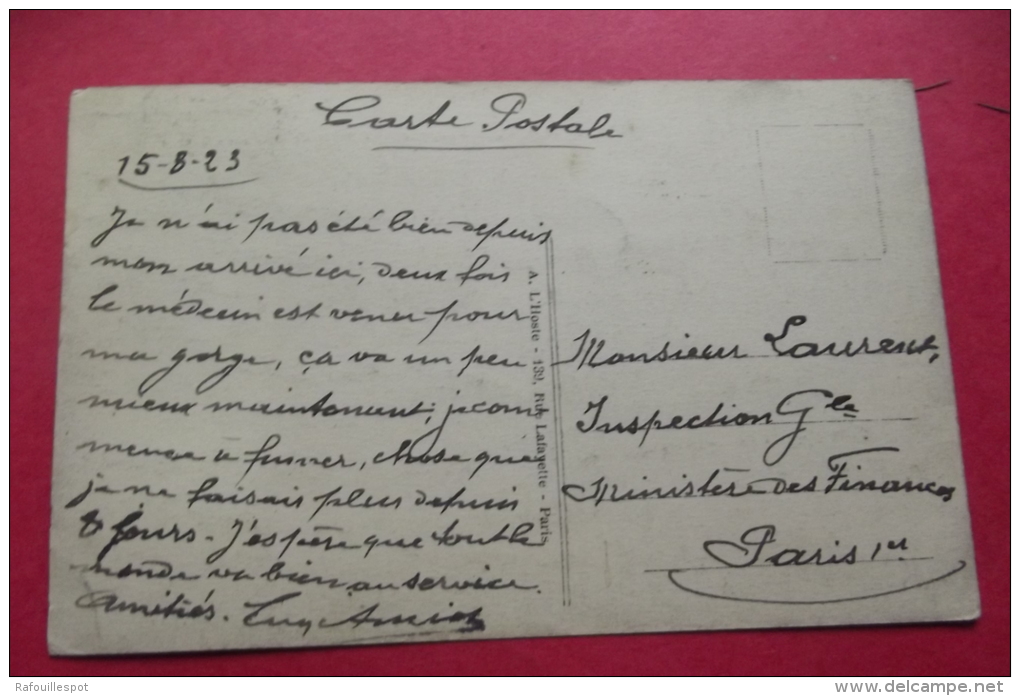 Carte Postale
15-8-23
Je n'ai pas été bien depuis
mon arrivé ici, deux fois
le médecin est venu pour
ma gorge, ça va un peu
mieux maintenant; je com
mence a fumer, chose que
je ne faisais plus depuis
8 jours. J'espère que tout le
monde va bien au service.
Amitiés.
A. L'Hoste - 139, Rue Lafayette - Paris
Monsieur Laurent,
Inspection Gle
Ministère des Finances
Paris 1er
Rafouillespot
www.delcampe.net